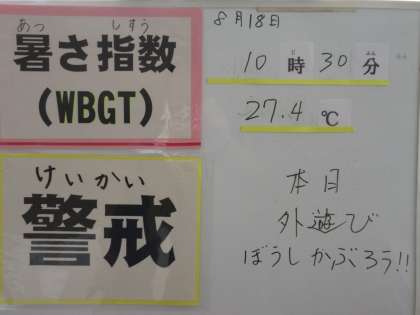 あつ しすう
暑さ指数
(WBGT)
けいかい
警戒
8月18日
10時30分
27.4℃
本日
外遊び
ぼうしかぶろう!!